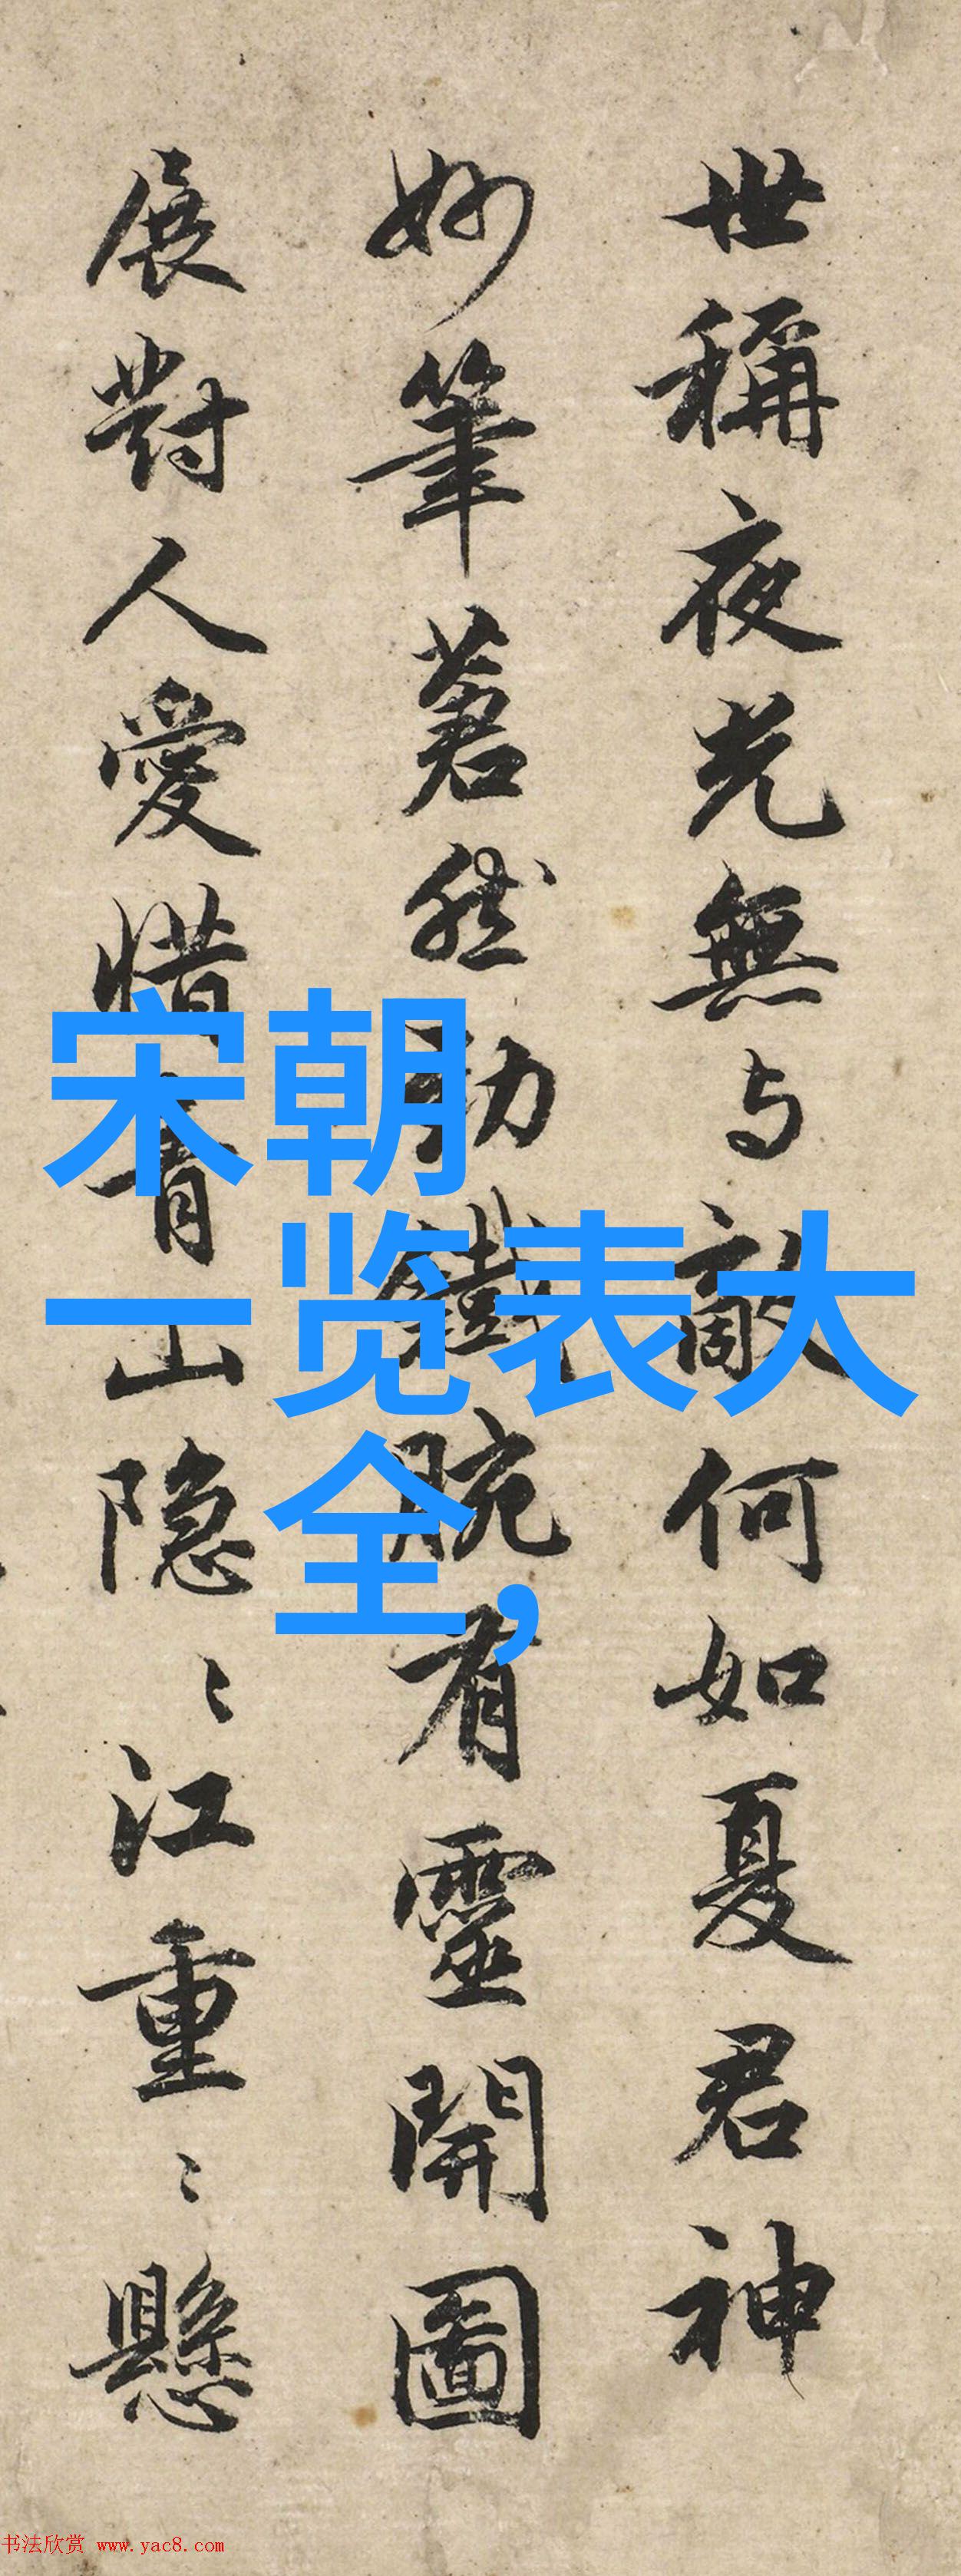 世稱夜光無与敵何如夏君神
妙筆著然勁鐵腕有靈開圖
展對人愛惜青山隐〻江重〻懸
宋朝
一览表大
全,
书法欣赏 www.yac8.com